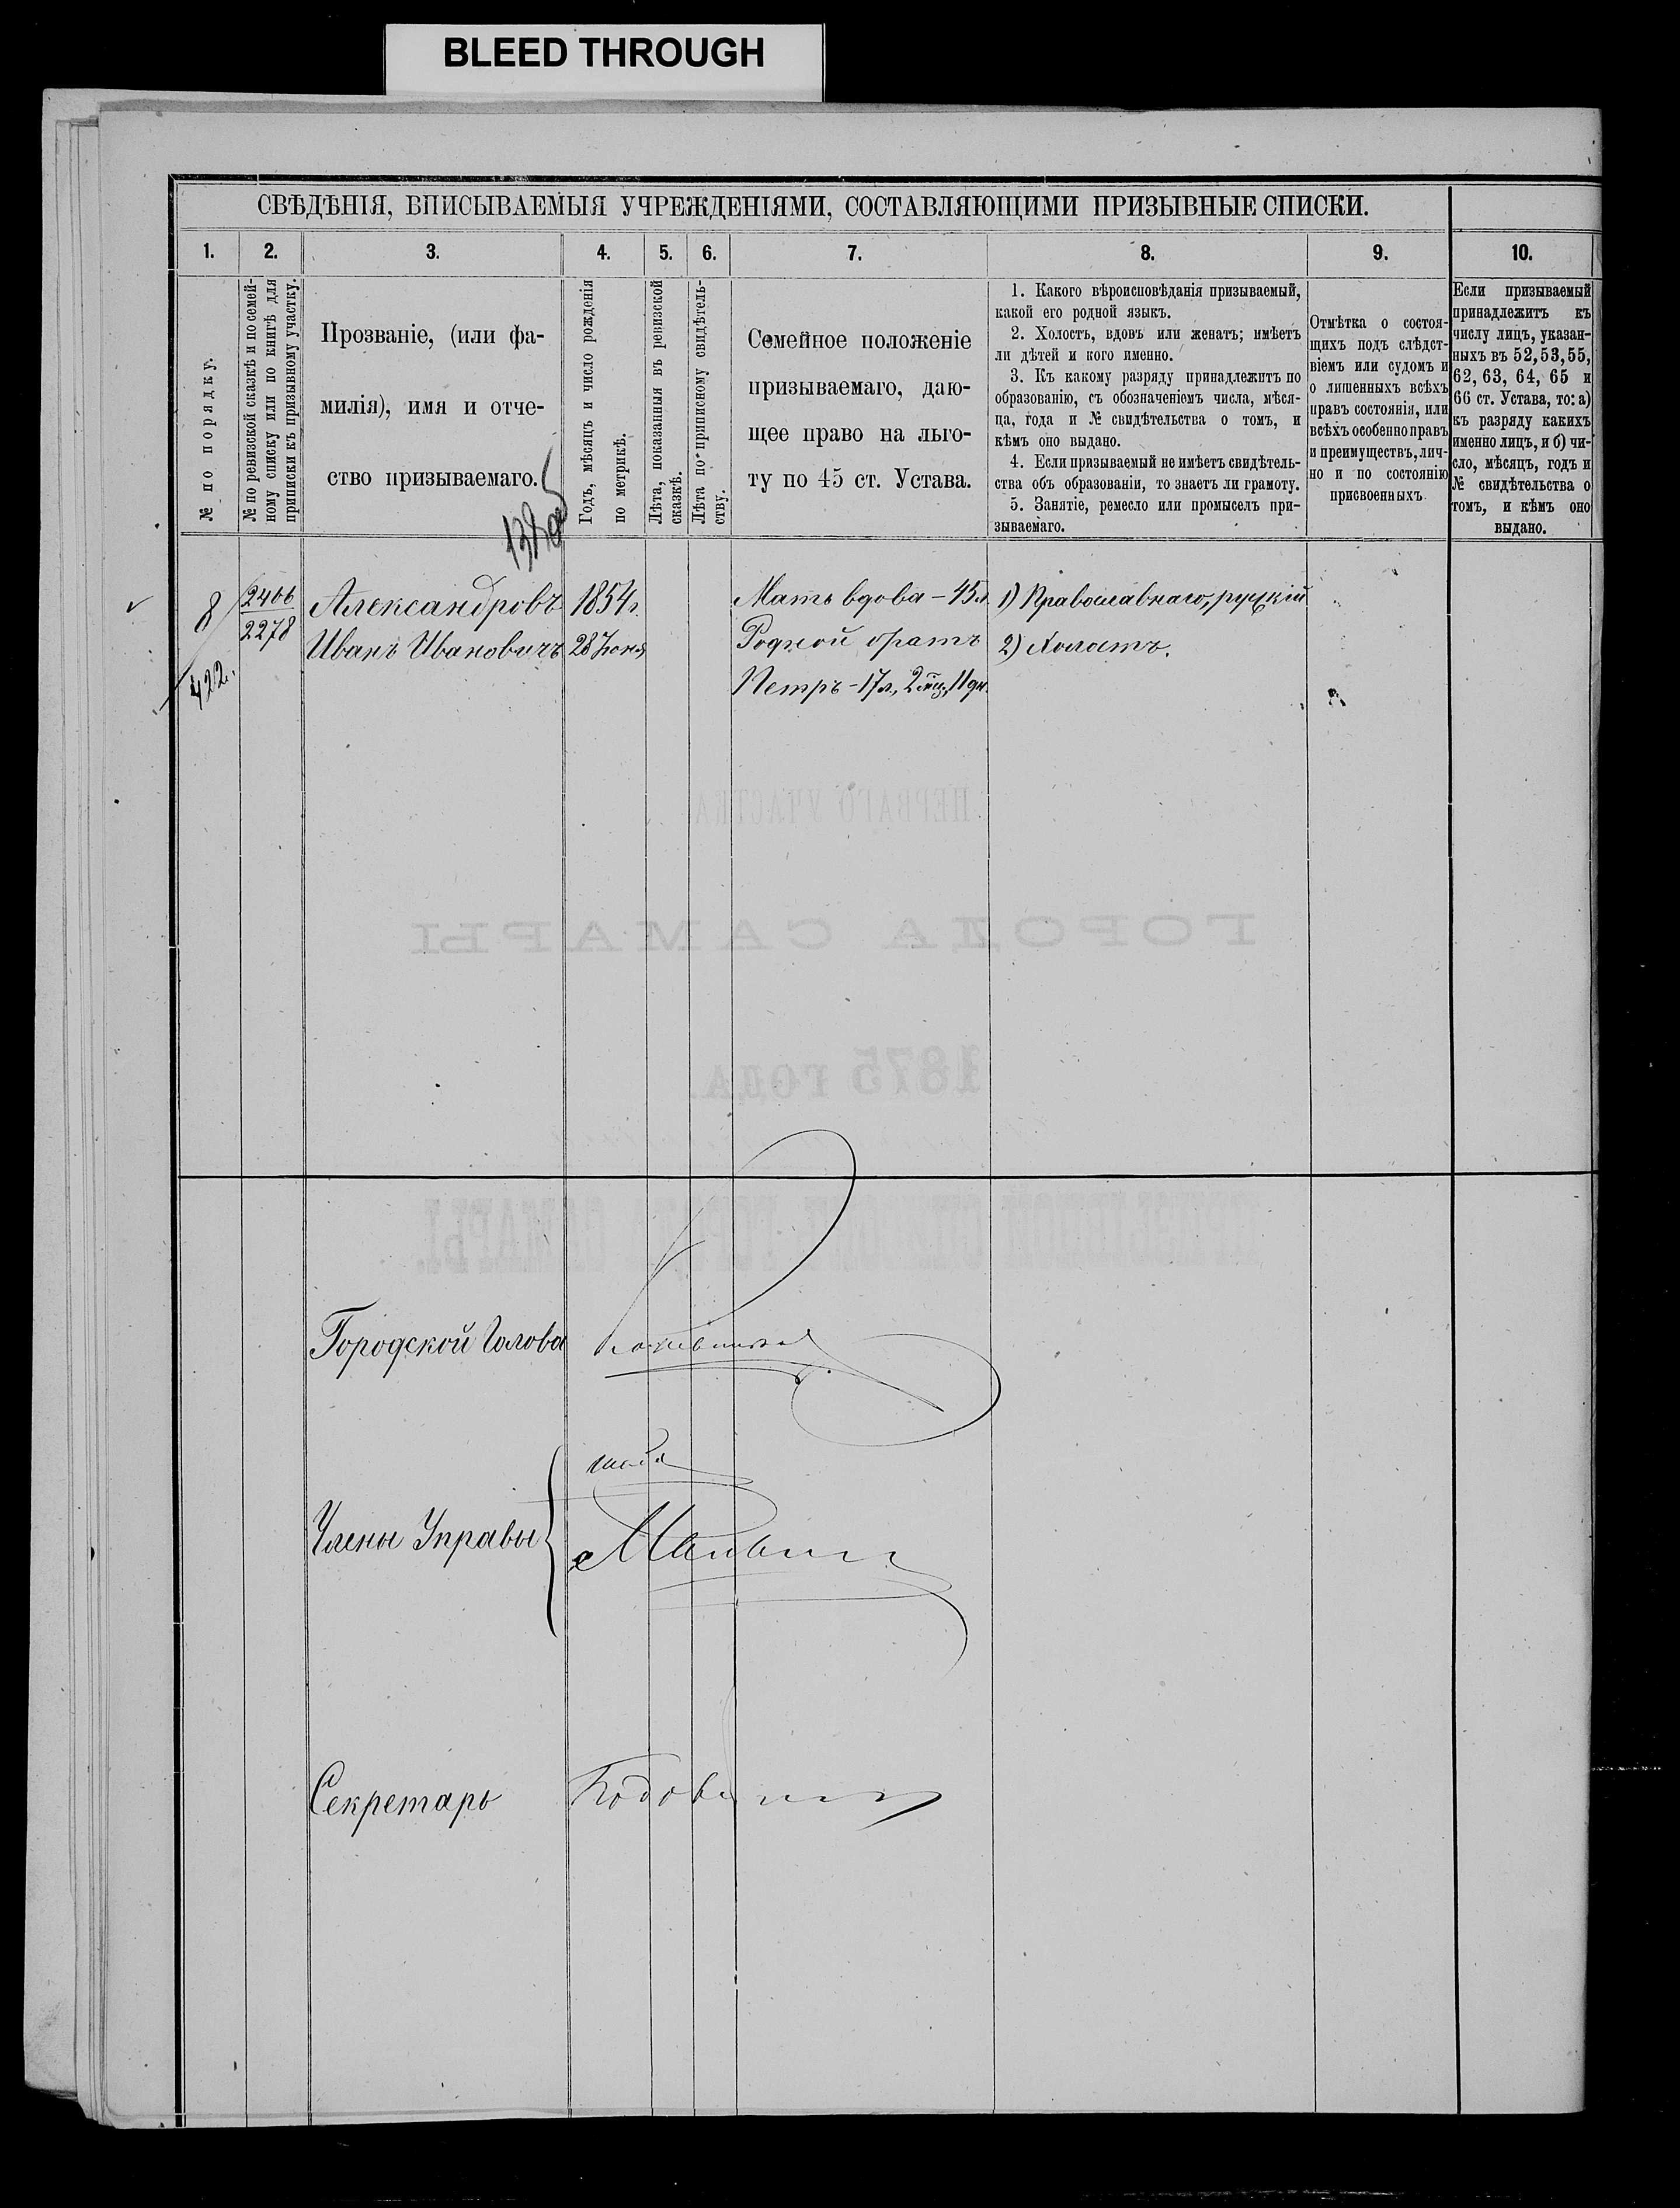 BLEED THROUGH
СВѢДѢНІЯ, ВПИСЫВАЕМЫЯ УЧРЕЖДЕНІЯМИ, СОСТАВЛЯЮЩИМИ ПРИЗЫВНЫЕ СПИСКИ.
1. 2. 3. 4. 5. 6. 7. 8. 9. 10.
№ по порядку.
№ по ревизской сказкѣ и по семей-
ному списку или по книгѣ для
приписки къ призывному участку.
Прозваніе, (или фа-
милія), имя и отче-
ство призываемаго.
Годъ, мѣсяцъ и число рожденія
по метрикѣ.
Лѣта, показанныя въ ревизской
сказкѣ.
Лѣта по приписному свидѣтель-
ству.
Семейное положеніе
призываемаго, даю-
щее право на льго-
ту по 45 ст. Устава.
1. Какого вѣроисповѣданія призываемый,
какой его родной языкъ.
2. Холостъ, вдовъ или женатъ; имѣетъ
ли дѣтей и кого именно.
3. Къ какому разряду принадлежитъ по
образованію, съ обозначеніемъ числа, мѣся-
ца, года и № свидѣтельства о томъ, и
кѣмъ оно выдано.
4. Если призываемый не имѣетъ свидѣтель-
ства объ образованіи, то знаетъ ли грамоту.
5. Занятіе, ремесло или промыселъ при-
зываемаго.
Отмѣтка о состоя-
щихъ подъ слѣдст-
віемъ или судомъ и
о лишенныхъ всѣхъ
правъ состоянія, или
всѣхъ особенно правъ
и преимуществъ, лич-
но и по состоянію
присвоенныхъ.
Если призываемый
принадлежитъ къ
числу лицъ, указан-
ныхъ въ 52, 53, 55,
62, 63, 64, 65 и
66 ст. Устава, то: а)
къ разряду какихъ
именно лицъ, и б) чи-
сло, мѣсяцъ, годъ и
№ свидѣтельства о
томъ, и кѣмъ оно
выдано.
8
422.
2406
2278
Александровъ
Иванъ Ивановичъ
1854 г.
28 Іюня
Мать вдова – 45 л.
Родной братъ
Петръ – 17 л., 2 мц., 11 дн.
1) Православнаго, русскій
2) Холостъ.
ПЕРВАГО УЧАСТКА
ГОРОДА САМАРЫ
1875 ГОДА.
Городской Голова
Члены Управы
Секретарь